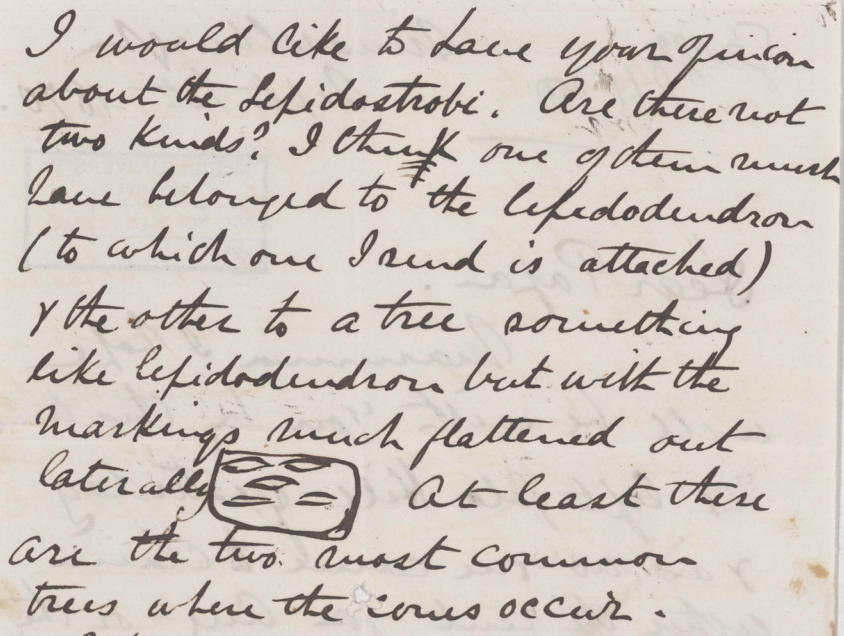 I would like to have your opinion
about the Lepidostrobi. Are there not
two kinds? I think one of them must
have belonged to the lepidodendron
(to which one I send is attached)
& the other to a tree something
like lepidodendron but with the
markings much flattened out
laterally At least these
are the two most common
trees where the cones occur.